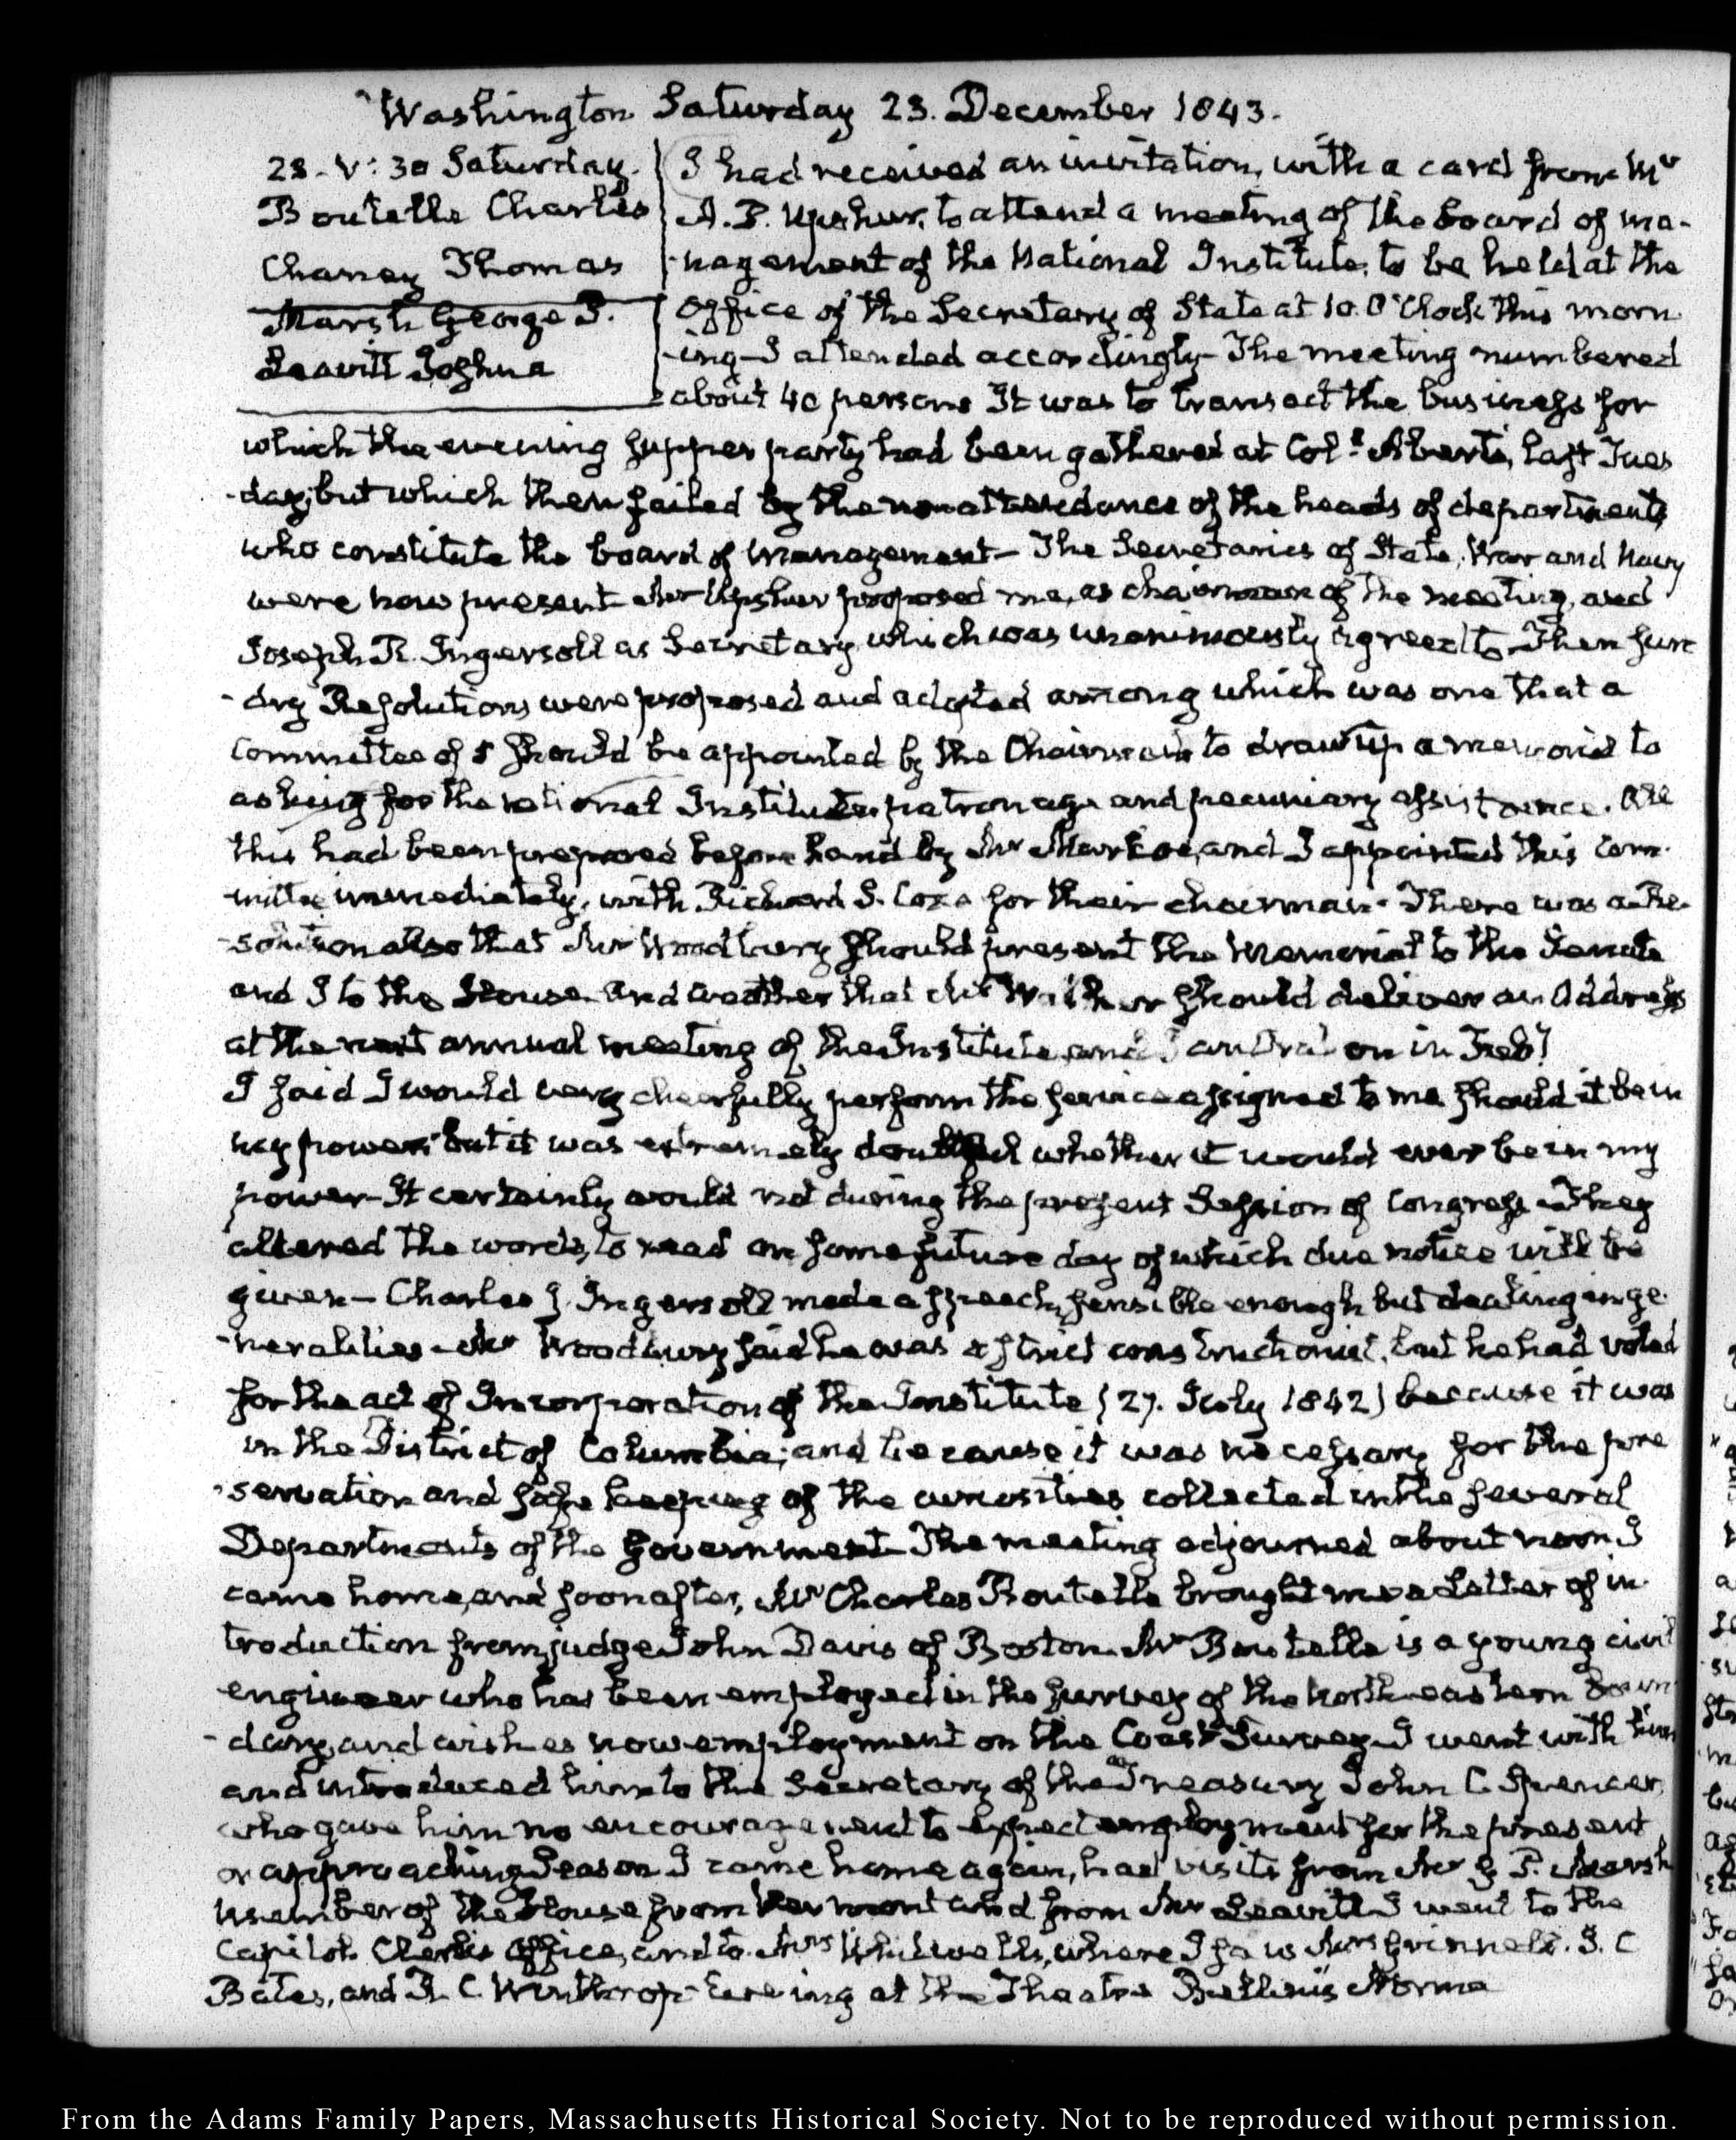 Washington Saturday 23. December 1843.
23. V:30 Saturday.
Boutelle Charles
Chaney Thomas
Marsh George P.
Leavitt Joshua
I had received an invitation, with a card from Mr
A. P. Upshur, to attend a meeting of the board of ma-
-nagement of the National Institute, to be held at the
Office of the Secretary of State at 10. O'Clock this morn
-ing- I attended accordingly- The meeting numbered
about 40 persons It was to transact the business for
which the evening supper party had been gathered at Coll. Abert's, last Tues
-day; but which then failed by the non attendance of the heads of departments
who constitute the board of management- The Secretaries of State, War and Navy
were now present- Mr Upshur proposed me, as chairman of the meeting, and
Joseph R. Ingersoll as Secretary, which was unanimously agreed to- Then sun
-dry Resolutions were proposed and adopted among which was one that a
Committee of 5 should be appointed by the Chairman to draw up a memorial to
asking for the national Institute patronage and pecuniary assistance. All
this had been prepared before hand by Mr Markoe, and I appointed this Com-
-mittee immediately, with Richard S. Coxe for their chairman- There was a Re-
-solution also that Mr Woodbury should present the Memorial to the Senate
and I to the House- and another that Mr Walker should deliver an Address
at the next annual meeting of the Institute, and I an Oration in Feby
I said I would very cheerfully perform the service assigned to me should it be in
my power: but it was extremely doubtful whether it would ever be in my
power- It certainly would not during the present Session of Congress- They
altered the words, to read on some future day of which due notice will be
given- Charles J. Ingersoll made a speech, sensible enough but dealing in ge-
-neralities- Mr Woodbury said he was a strict constructionist, but he had voted
for the act of Incorporation of the Institute (27. July 1842) because it was
in the District of Columbia; and because it was necessary for the pre
-servation and safe keeping of the curiosities collected in the several
Departments of the Government- The meeting adjourned about noon I
came home, and soon after, Mr Charles Boutelle brought me a Letter of in-
troduction from judge John Davis of Boston- Mr Boutelle is a young civil
engineer who has been employed in the survey of the North eastern boun
-dary, and wishes now employment on the Coast Survey- I went with him
and introduced him to the Secretary of the Treasury John C. Spencer,
who gave him no encouragement to expect employment for the present
or approaching Season I came home again, had visits from Mr G. P. Marsh
member of the House from Vermont and from Mr Leavitt- I went to the
Capitol. Clerk's Office, and to Mrs Whitwell's, where I saw Mrs Grinnell. I. C
Bates, and R. C. Winthrop- Evening at the Theatre Bellini's Norma
From the Adams Family Papers, Massachusetts Historical Society. Not to be reproduced without permission.